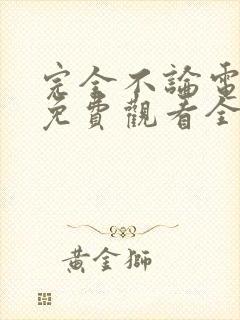 完全不論電
免費觀看全
黃金獅